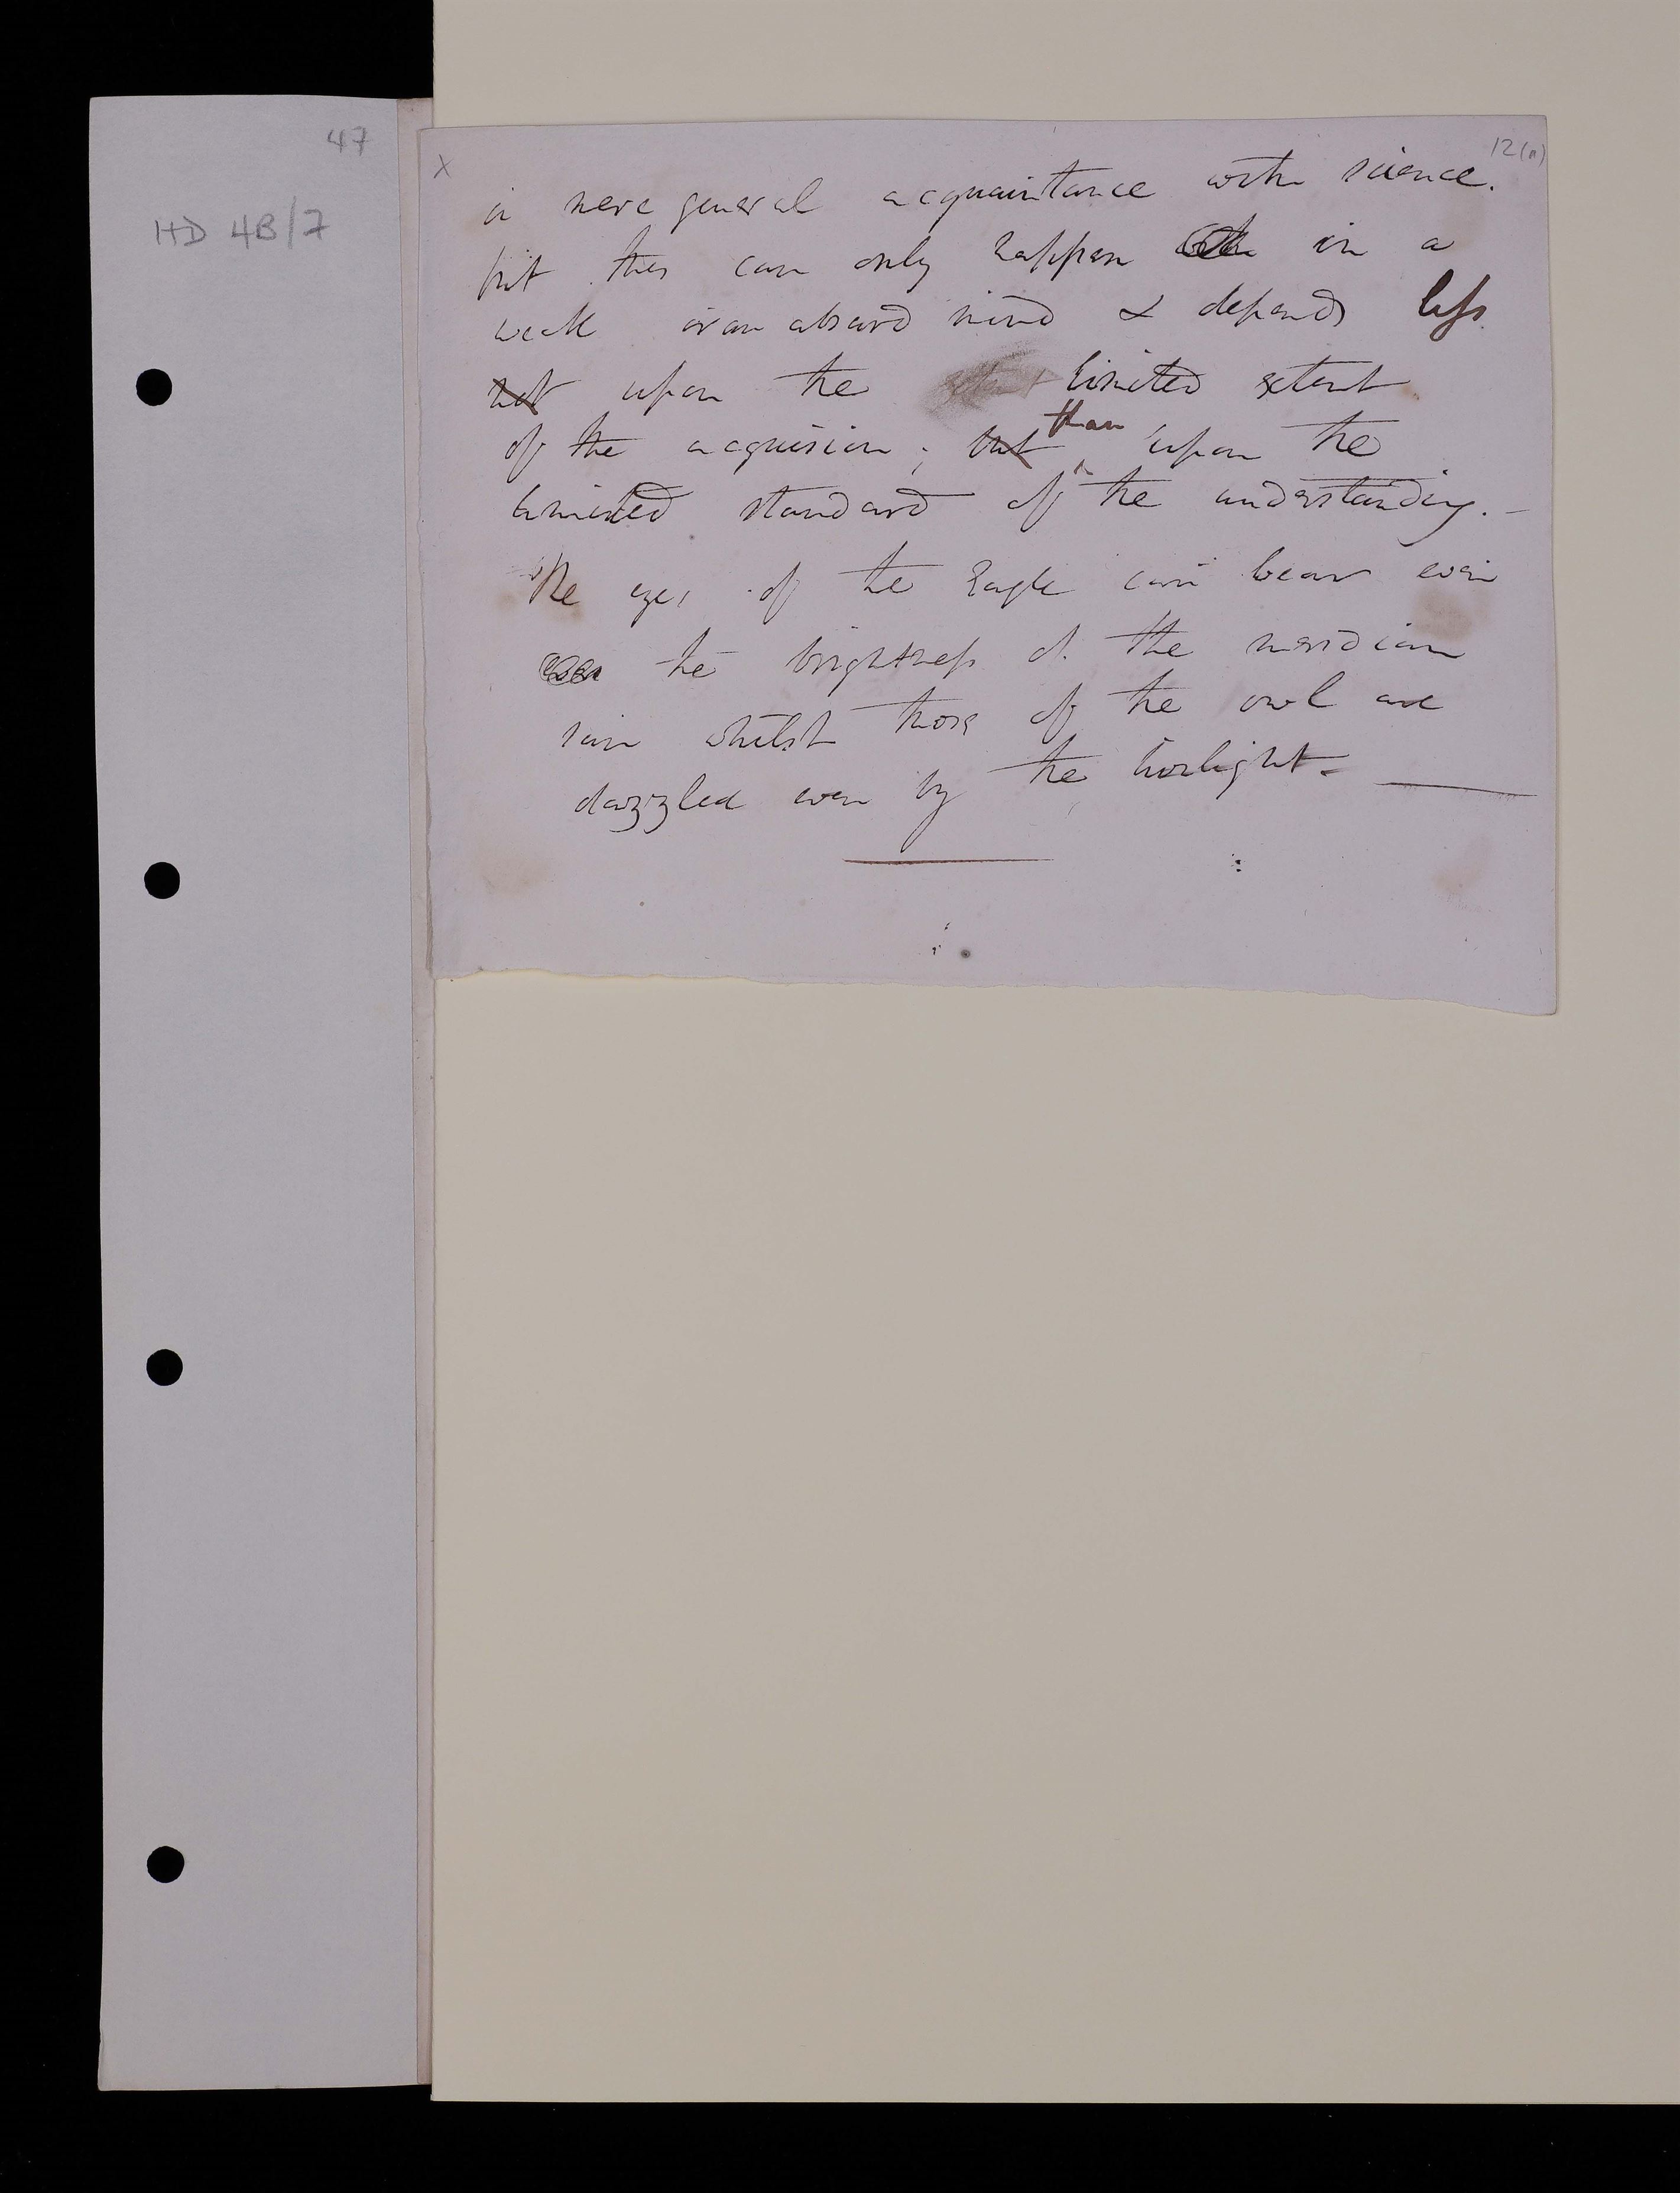 47
HD 4B/7
X
12(a)
in mere general acquaintance with science.
but this can only happen in a
weak or an absurd mind & depends less
not upon the limited extent
of the acquision; but than upon the
limited standard of the understanding. -
The eyes of the Eagle can bear even
even the brightness of the meridian
sun whilst those of the owl are
dazzled even by the twilight. -